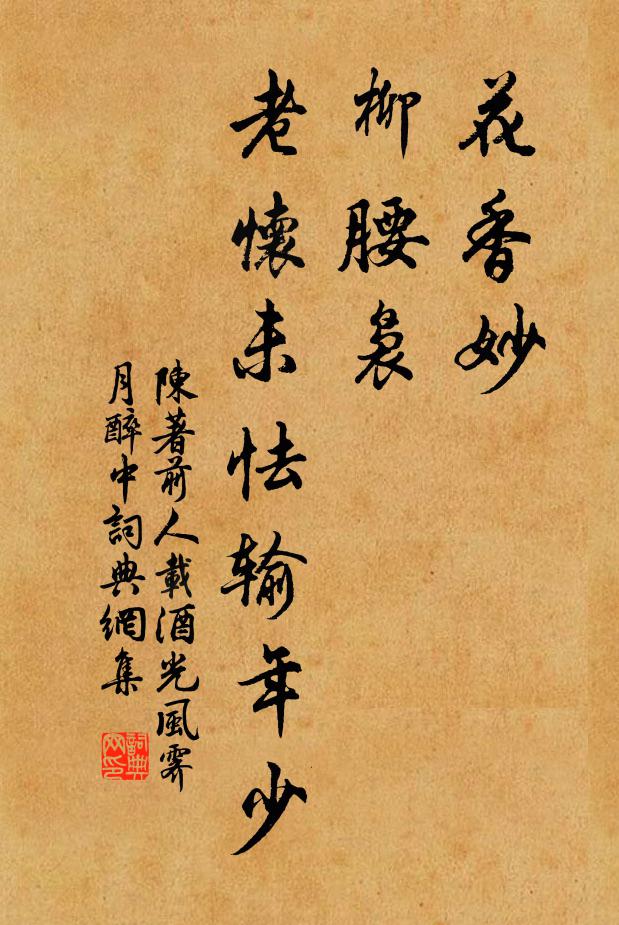 花香妙
柳腰裊
老懷未怯輸年少
陳著前人載酒光風霽
月醉中詞典網集
詞典
網印